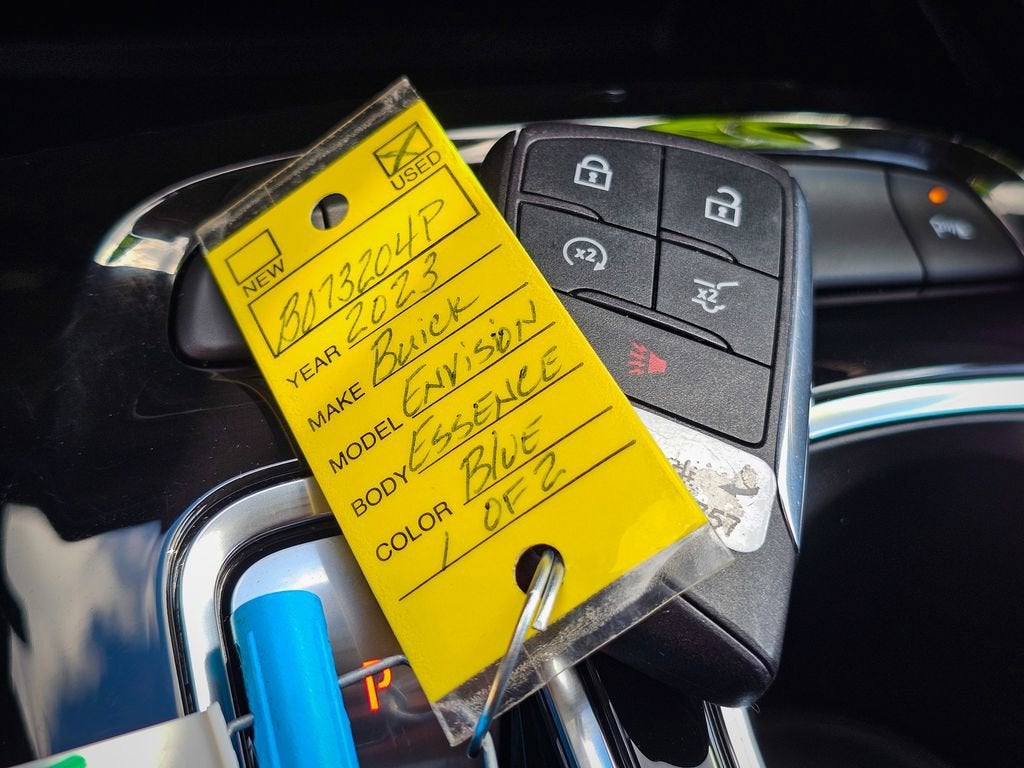 USED
NEW
B073204P
YEAR 2023
MAKE Buick
MODEL ENVISION
BODY ESSENCE
COLOR BLUE
1 OF 2
x2
x2
57
P